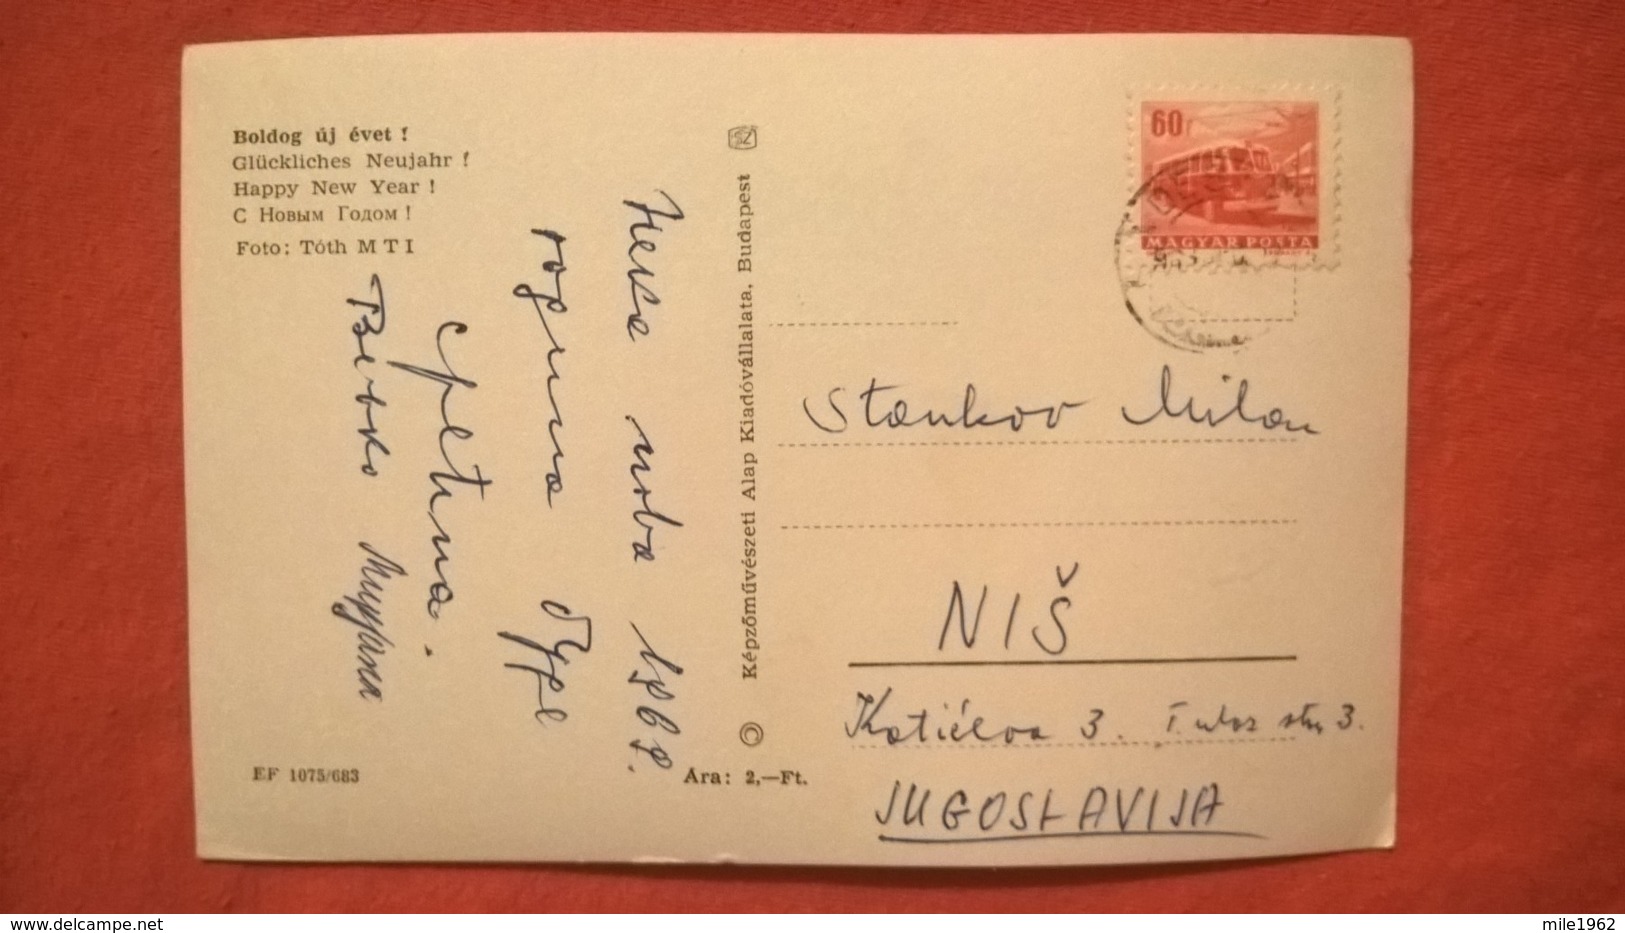 Boldog új évet !
Glückliches Neujahr !
Happy New Year !
С Новым Годом !
Foto: Tóth MTI
Нека нова 1969.
година буде
сретна.
Мирјана
EF 1075/683
Képzőművészeti Alap Kiadóvállalata, Budapest
Ára: 2,—Ft.
60f
MAGYAR POSTA
Stankov Milan
NIŠ
3. 3.
JUGOSLAVIJA
delcampe.net
mile1962